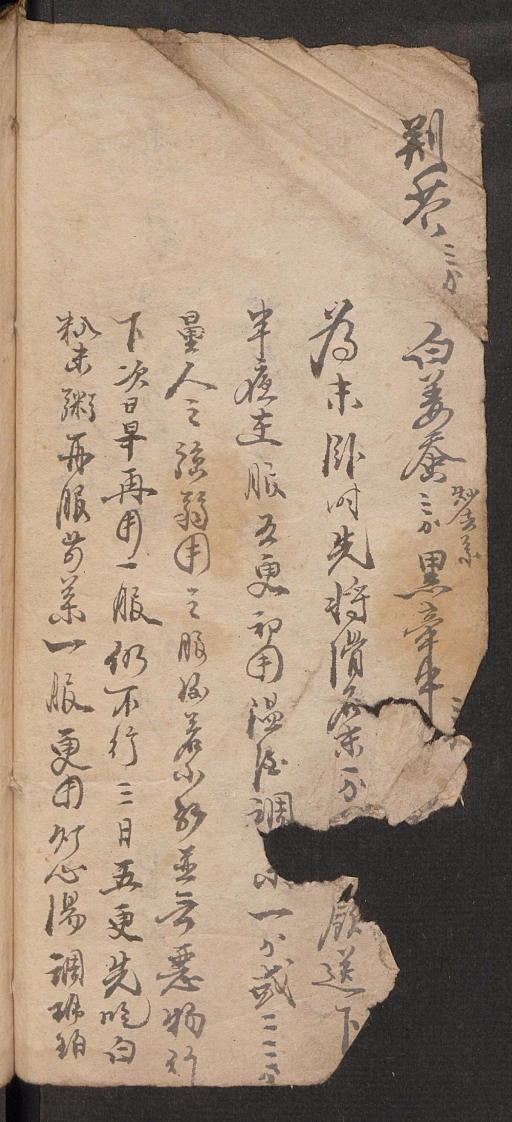 荆芥三分 白姜蚕三分 炒去糸 黑牵牛三
為末卧时先将滑石末一分 飲送下
半夜連服五更初用温酒調 一分或二三分
量人之強弱用之服後若小 並无惡物行
下次日早再用一服仍不行三日五更先吃白
粥再服前藥一服更用灯心湯調琥珀